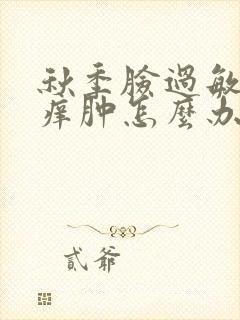 秋季臉過敏
痒肿怎麼办
貳爺